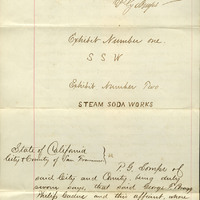 Exhibit Number one
S S W
Exhibit Number Two
STEAM SODA WORKS
State of California
City & County of San Francisco } ss
P. G. of
said City and County, being duly
sworn says, that said George
and this affiant, whose